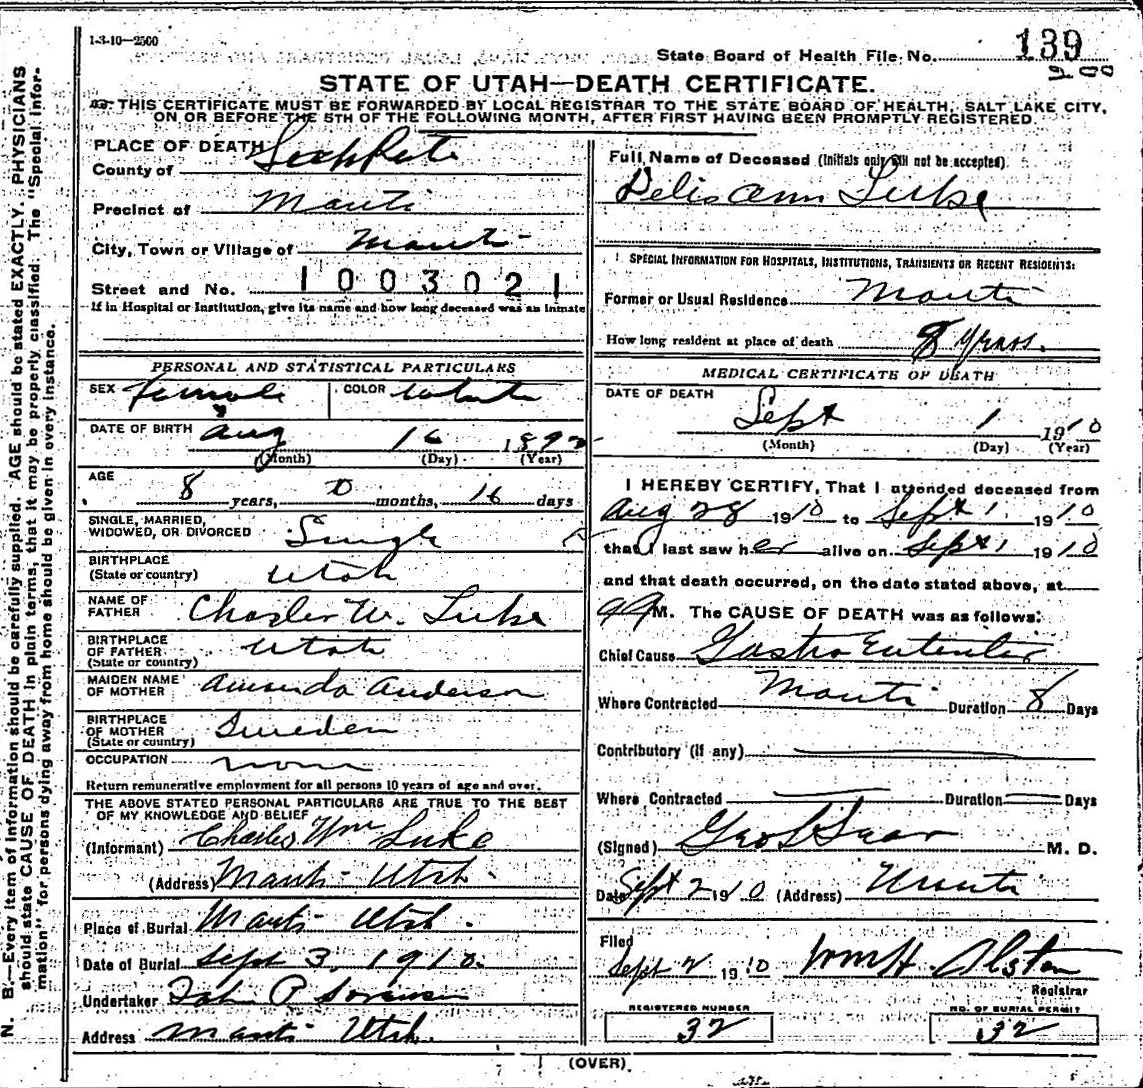 1-3-10—2500
State Board of Health File No. 139
STATE OF UTAH—DEATH CERTIFICATE.
THIS CERTIFICATE MUST BE FORWARDED BY LOCAL REGISTRAR TO THE STATE BOARD OF HEALTH, SALT LAKE CITY,
ON OR BEFORE THE 5TH OF THE FOLLOWING MONTH, AFTER FIRST HAVING BEEN PROMPTLY REGISTERED.
N. B.—Every item of information should be carefully supplied. AGE should be stated EXACTLY. PHYSICIANS
should state CAUSE OF DEATH in plain terms, that it may be properly classified. The "Special Infor-
mation" for persons dying away from home should be given in every instance.
PLACE OF DEATH
County of SanPete
Precinct of Manti
City, Town or Village of Manti
Street and No. 1003021
If in Hospital or Institution, give its name and how long deceased was an inmate
PERSONAL AND STATISTICAL PARTICULARS
SEX Female COLOR White
DATE OF BIRTH Aug 16
(Month) (Day) (Year)
AGE 8 years, 0 months, 16 days
SINGLE, MARRIED,
WIDOWED, OR DIVORCED Single
BIRTHPLACE
(State or country) Utah
NAME OF
FATHER Charles W. Luke
BIRTHPLACE
OF FATHER
(State or country) Utah
MAIDEN NAME
OF MOTHER Amanda Anderson
BIRTHPLACE
OF MOTHER
(State or country) Sweden
OCCUPATION none
Return remunerative employment for all persons 10 years of age and over.
THE ABOVE STATED PERSONAL PARTICULARS ARE TRUE TO THE BEST
OF MY KNOWLEDGE AND BELIEF
(Informant) Charles Wm Luke
(Address) Manti Utah.
Place of Burial Manti Utah.
Date of Burial Sept 3, 1910.
Undertaker John P Sorensen
Address Manti Utah.
Full Name of Deceased (Initials only will not be accepted)
Ann Luke
SPECIAL INFORMATION FOR HOSPITALS, INSTITUTIONS, TRANSIENTS OR RECENT RESIDENTS:
Former or Usual Residence Manti
How long resident at place of death 8 years.
MEDICAL CERTIFICATE OF DEATH
DATE OF DEATH
Sept 1 1910
(Month) (Day) (Year)
I HEREBY CERTIFY, That I attended deceased from
Aug 28 1910 to Sept 1 1910
that I last saw her alive on Sept 1 1910
and that death occurred, on the date stated above, at
M. The CAUSE OF DEATH was as follows:
Chief Cause Gastro Enteritis
Where Contracted Manti Duration 8 Days
Contributory (if any)
Where Contracted Duration Days
(Signed) Geo L M. D.
Date Sept 2 1910 (Address) Manti
Filed
Sept 2 1910 Wm H. Alston
Registrar
REGISTERED NUMBER
32
NO. OF BURIAL PERMIT
32
(OVER)